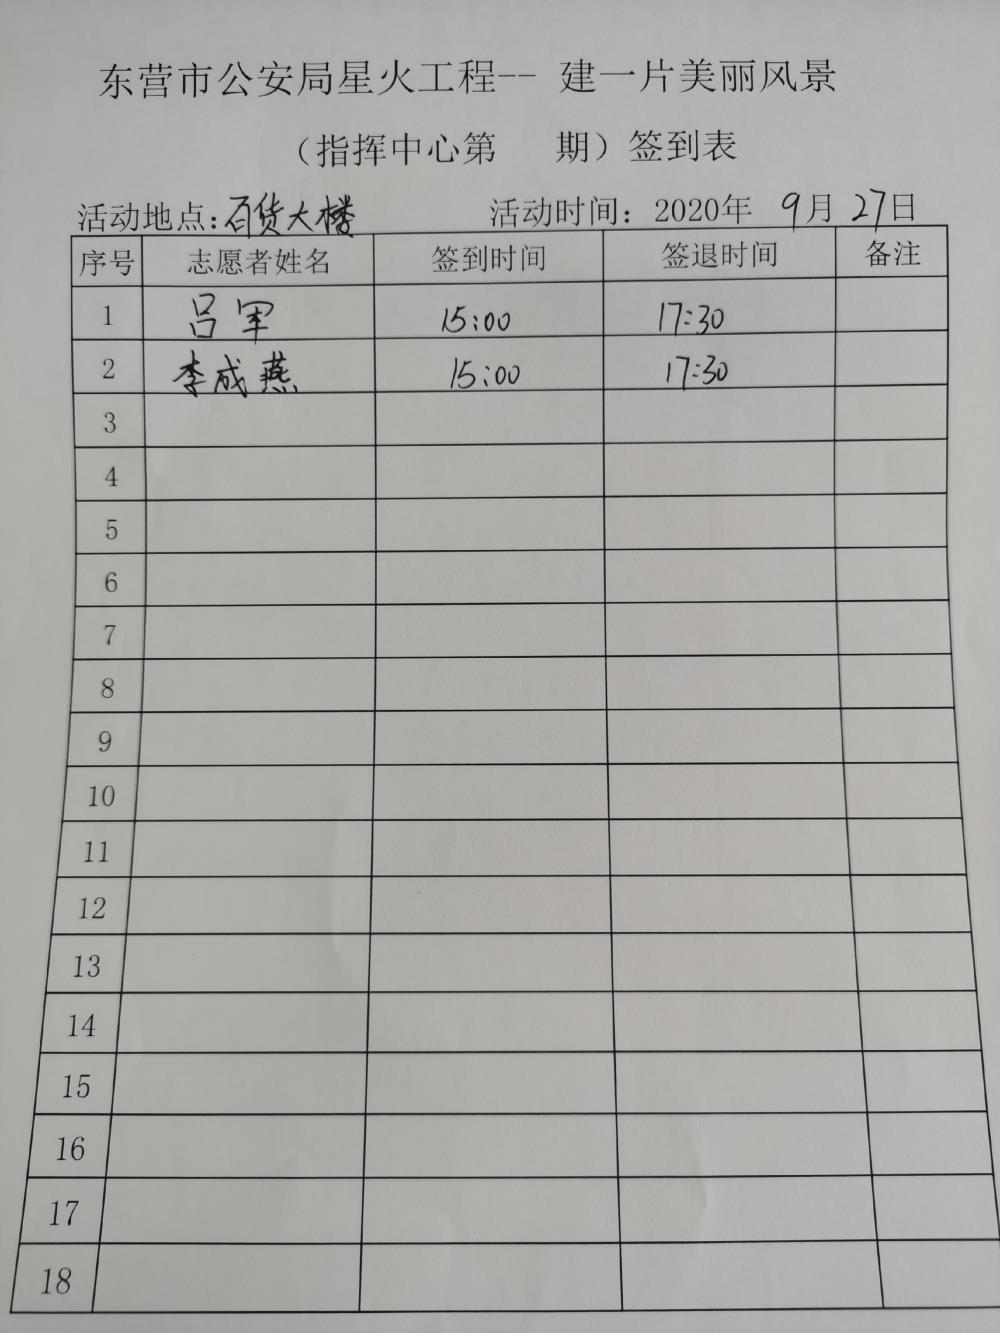 东营市公安局星火工程-- 建一片美丽风景
（指挥中心第 期）签到表
活动地点:百货大楼 活动时间：2020年 9月 27日
序号 志愿者姓名 签到时间 签退时间 备注
1 吕军 15:00 17:30
2 李成燕 15:00 17:30
3
4
5
6
7
8
9
10
11
12
13
14
15
16
17
18